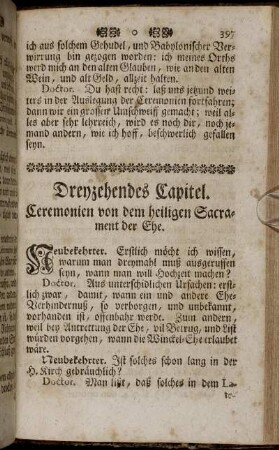 395
ich aus solchem Gehudel, und Babylonischer Ver-
wirrung bin gezogen worden: ich meines Orths
werd mich an den alten Glauben, wie an den alten
Wein, und alt Geld, allzeit halten.
Doctor. Du hast recht: laß uns jetzund wei-
ters in der Auslegung der Ceremonien fortfahren;
dann wir ein grossen Umschweiff gemacht; weil al-
les aber sehr lehrreich, wird es noch dir, noch je-
mand andern, wie ich hoff, beschwerlich gefallen
seyn.
Dreyzehendes Capitel.
Ceremonien von dem heiligen Sacra-
ment der Ehe.
Neubekehrter. Erstlich möcht ich wissen,
warum man dreymahl muß ausgeruffen
seyn, wann man will Hochzeit machen?
Doctor. Aus unterschidlichen Ursachen: erst-
lich zwar, damit, wann ein und andere Ehe-
Verhindernuß, so verborgen, und unbekannt,
vorhanden ist, offenbahr werde. Zum andern,
weil bey Antrettung der Ehe, vil Betrug, und List
würden vorgehen, wann die Winckel-Ehe erlaubet
wäre.
Neubekehrter. Ist solches schon lang in der
H. Kirch gebräuchlich?
Doctor. Man lißt, daß solches in dem La-
te-